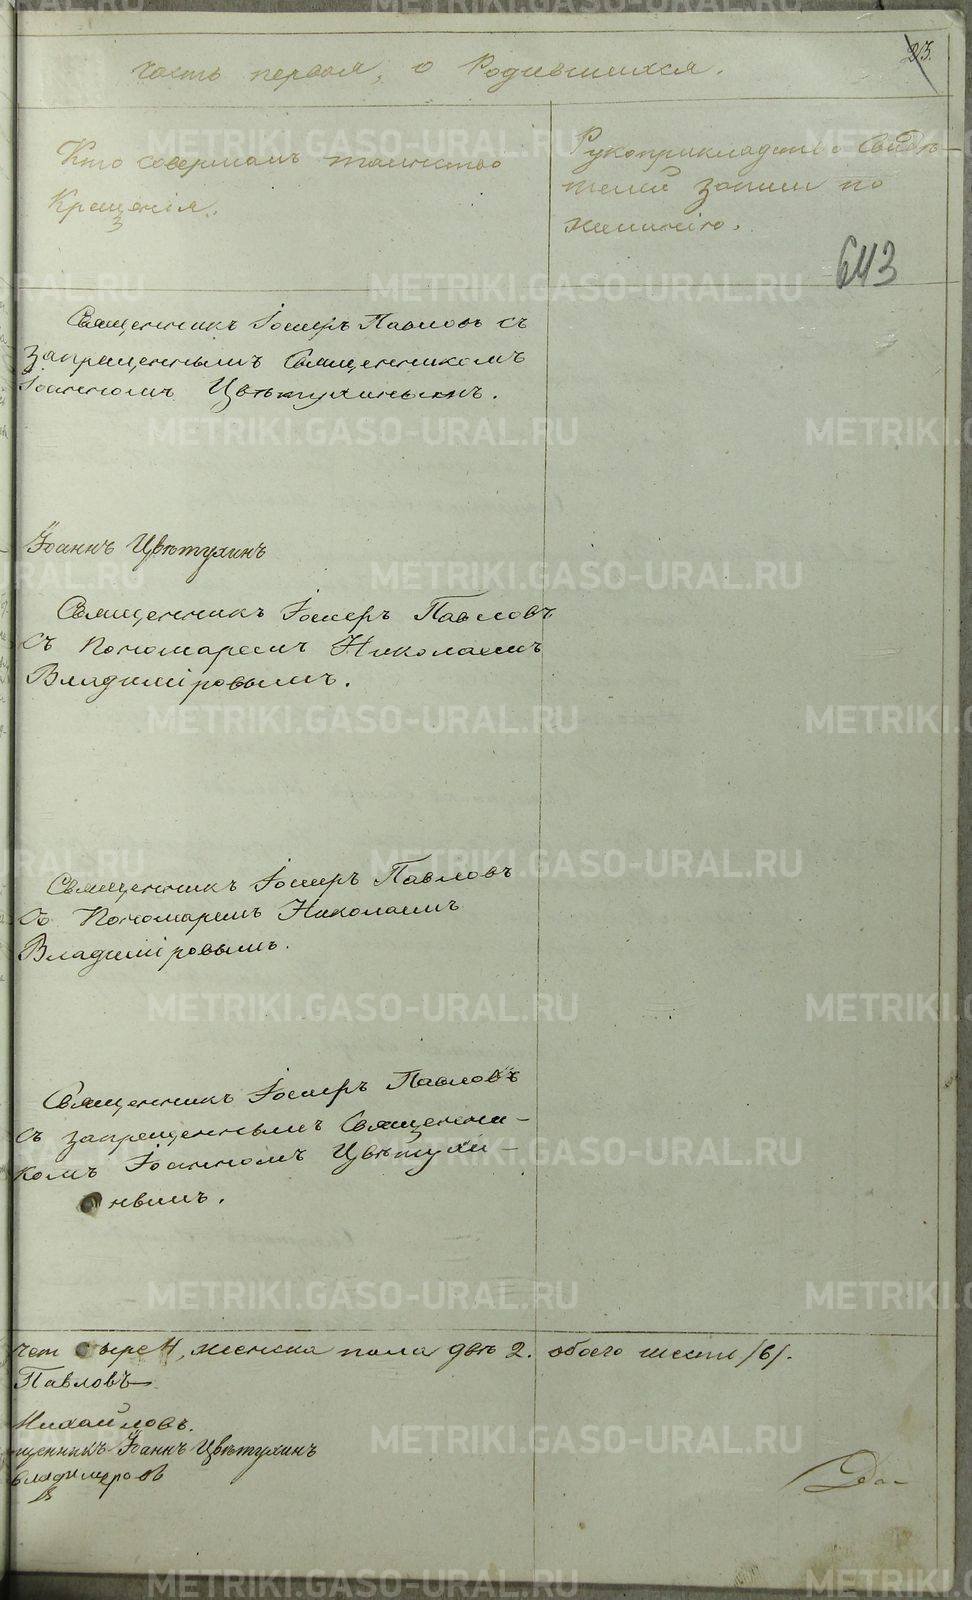 23.
Часть первая, о Родившихся.
Кто совершалъ таинство
Крещенія.
Рукоприкладство Свидѣ-
телей записи по
желанію.
643
Священникъ Іосифъ Павловъ съ
Запрещеннымъ Священникомъ
Іоанномъ Цвѣтухинымъ.
Іоаннъ Цвѣтухинъ
Священникъ Іосифъ Павловъ
съ Пономаремъ Николаемъ
Владиміровымъ.
Священникъ Іосифъ Павловъ
съ Пономаремъ Николаемъ
Владиміровымъ.
Священникъ Іосифъ Павловъ
съ запрещеннымъ Священни-
комъ Іоанномъ Цвѣтухи-
нымъ.
чет ыре 4, женска пола двѣ 2. обоего шесть /6/.
Павловъ
Михайловъ.
щенникъ Іоаннъ Цвѣтухинъ
Владимеровъ
METRIKI.GASO-URAL.RU